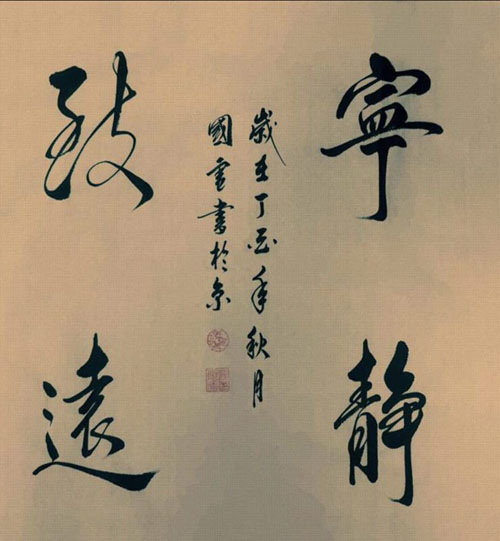 寧静
歲在丁酉年秋月
國雲書於京
致遠